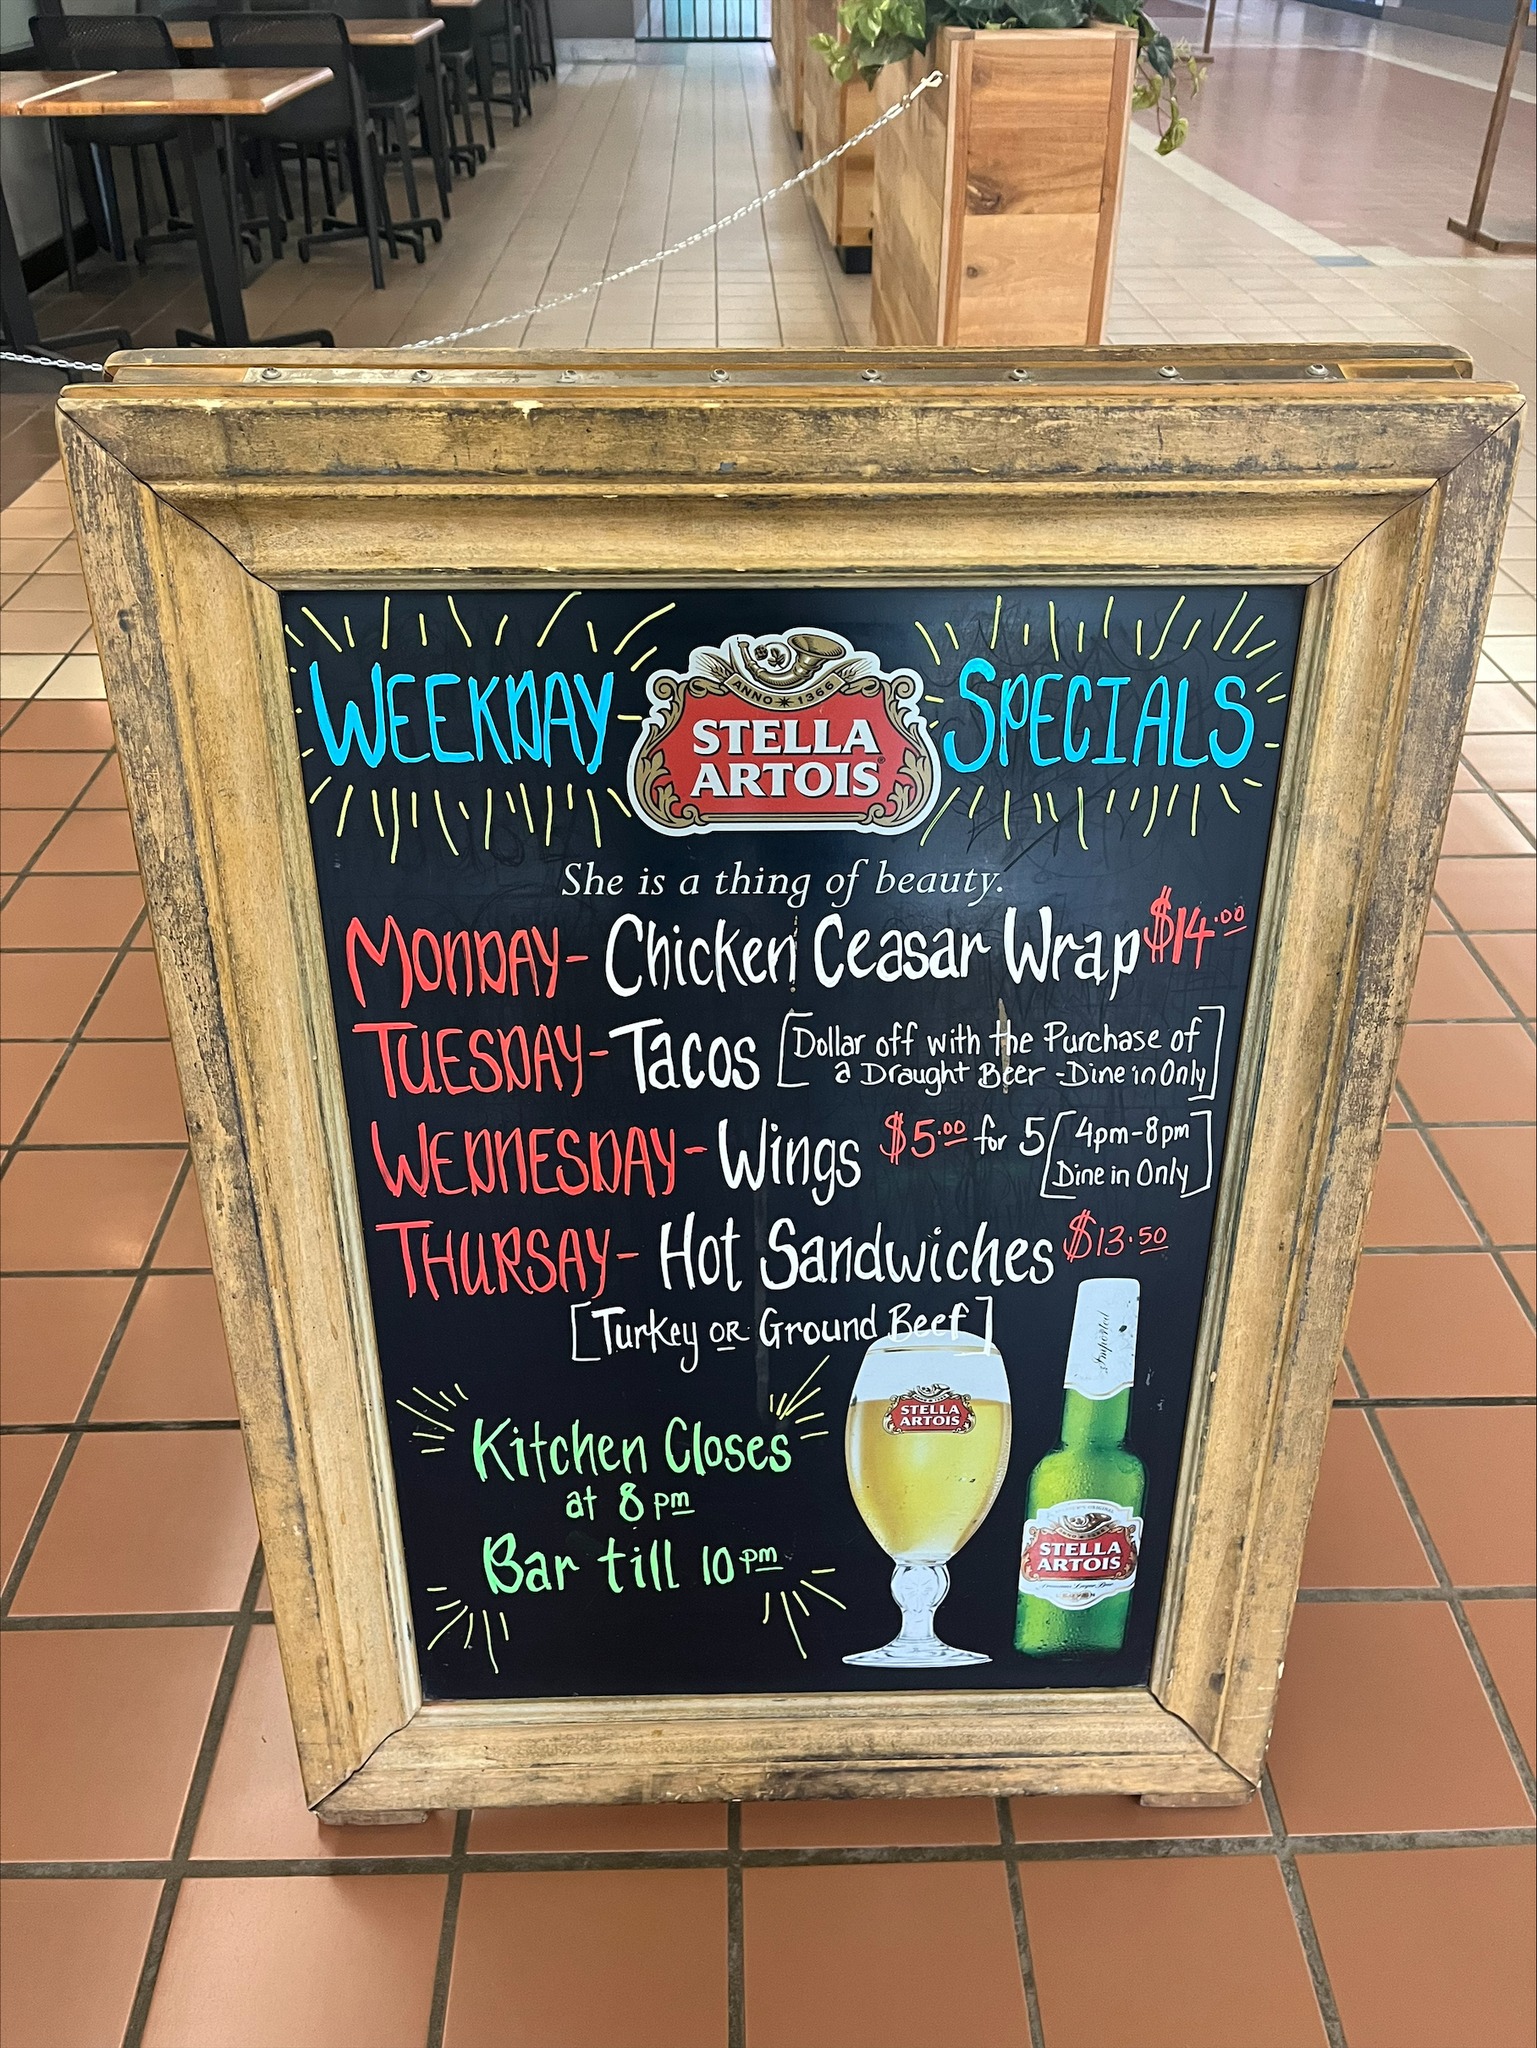 WEEKDAY SPECIALS
ANNO 1366
STELLA
ARTOIS
She is a thing of beauty.
MONDAY- Chicken Ceasar Wrap $14.00
TUESDAY- Tacos [Dollar off with the Purchase of
a Draught Beer - Dine in Only]
WEDNESDAY- Wings $5.00 for 5 [4pm-8pm
Dine in Only]
THURSAY- Hot Sandwiches $13.50
[Turkey OR Ground Beef]
Kitchen Closes
at 8 pm
Bar till 10 pm
STELLA
ARTOIS
Imported
STELLA
ARTOIS